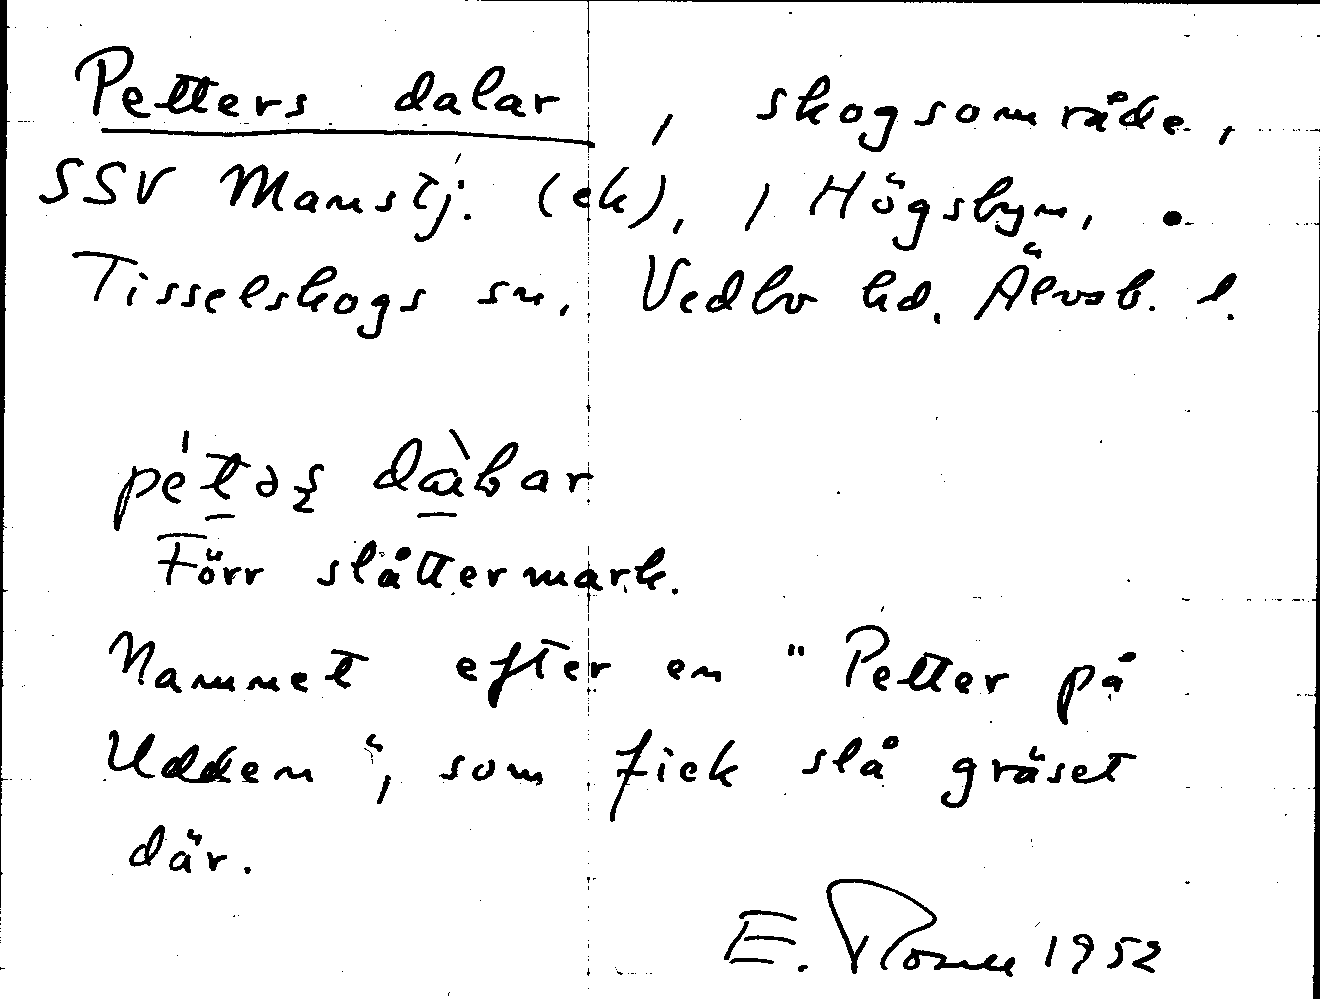 Petters dalar, skogsområde,
SSV Manstj. (ek), i Högsbyn,
Tisselskogs sn. Vedbo hd. Älvsb. l.
Förr slåttermark.
Namnet efter en "Petter på
Udden", som fick slå gräset
där.
E. Rosell 1952